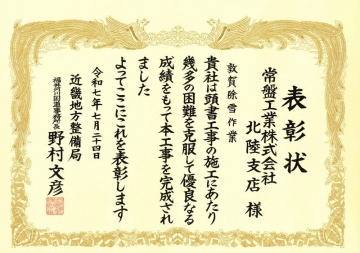 表彰状
常盤工業株式会社
北陸支店 様
敦賀除雪作業
貴社は頭書工事の施工にあたり
幾多の困難を克服して優良なる
成績をもって本工事を完成され
ました
よってここにこれを表彰します
令和七年七月二十四日
近畿地方整備局
福井河川国道事務所長 野村文彦